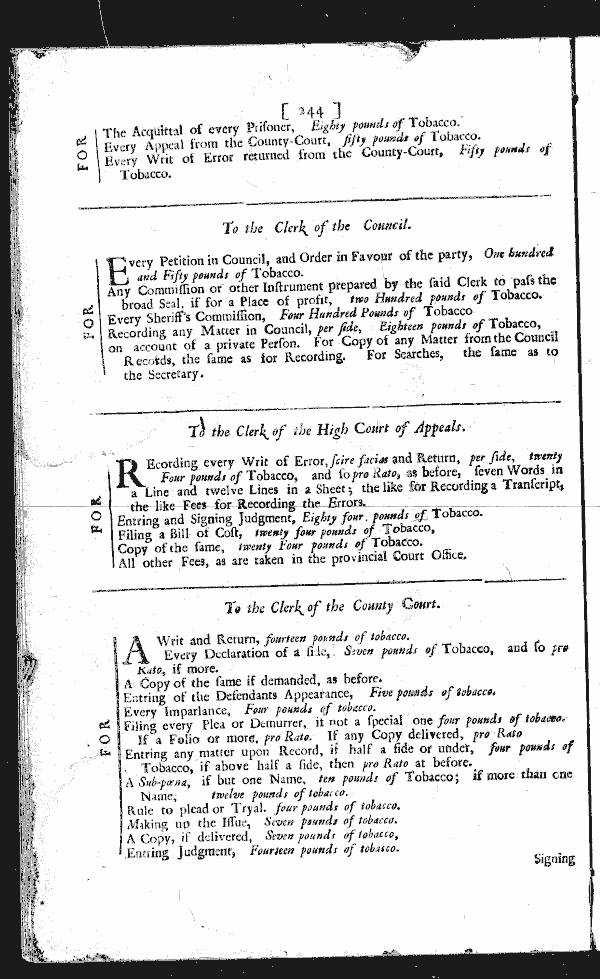 [ 244 ]
FOR
The Acquittal of every Priſoner, Eighty pounds of Tobacco.
Every Appeal from the County-Court, fifty pounds of Tobacco.
Every Writ of Error returned from the County-Court, Fifty pounds of
Tobacco.
To the Clerk of the Council.
FOR
Every Petition in Council, and Order in Favour of the party, One hundred
and Fifty pounds of Tobacco.
Any Commiſſion or other Inſtrument prepared by the ſaid Clerk to paſs the
broad Seal, if for a Place of profit, two Hundred pounds of Tobacco.
Every Sheriff's Commiſſion, Four Hundred Pounds of Tobacco
Recording any Matter in Council, per ſide, Eighteen pounds of Tobacco,
on account of a private Perſon. For Copy of any Matter from the Council
Records, the ſame as for Recording. For Searches, the ſame as to
the Secretary.
To the Clerk of the High Court of Appeals.
FOR
REcording every Writ of Error, ſcire facias and Return, per ſide, twenty
Four pounds of Tobacco, and ſo pro Rato, as before, ſeven Words in
a Line and twelve Lines in a Sheet; the like for Recording a Tranſcript,
the like Fees for Recording the Errors.
Entring and Signing Judgment, Eighty four pounds of Tobacco.
Filing a Bill of Coſt, twenty four pounds of Tobacco,
Copy of the ſame, twenty Four pounds of Tobacco.
All other Fees, as are taken in the provincial Court Office.
To the Clerk of the County Court.
FOR
A Writ and Return, fourteen pounds of tobacco.
Every Declaration of a ſide, Seven pounds of Tobacco, and ſo pro
Rato, if more.
A Copy of the ſame if demanded, as before.
Entring of the Defendants Appearance, Five pounds of tobacco.
Every Imparlance, Four pounds of tobacco.
Filing every Plea or Demurrer, it not a ſpecial one four pounds of tobacco.
If a Folio or more, pro Rato. If any Copy delivered, pro Rato
Entring any matter upon Record, if half a ſide or under, four pounds of
Tobacco, if above half a ſide, then pro Rato at before.
A Sub-pœna, if but one Name, ten pounds of Tobacco; if more than one
Name, twelve pounds of tobacco.
Rule to plead or Tryal. four pounds of tobacco.
Making up the Iſſue, Seven pounds of tobacco.
A Copy, if delivered, Seven pounds of tobacco,
Entring Judgment, Fourteen pounds of tobacco.
Signing